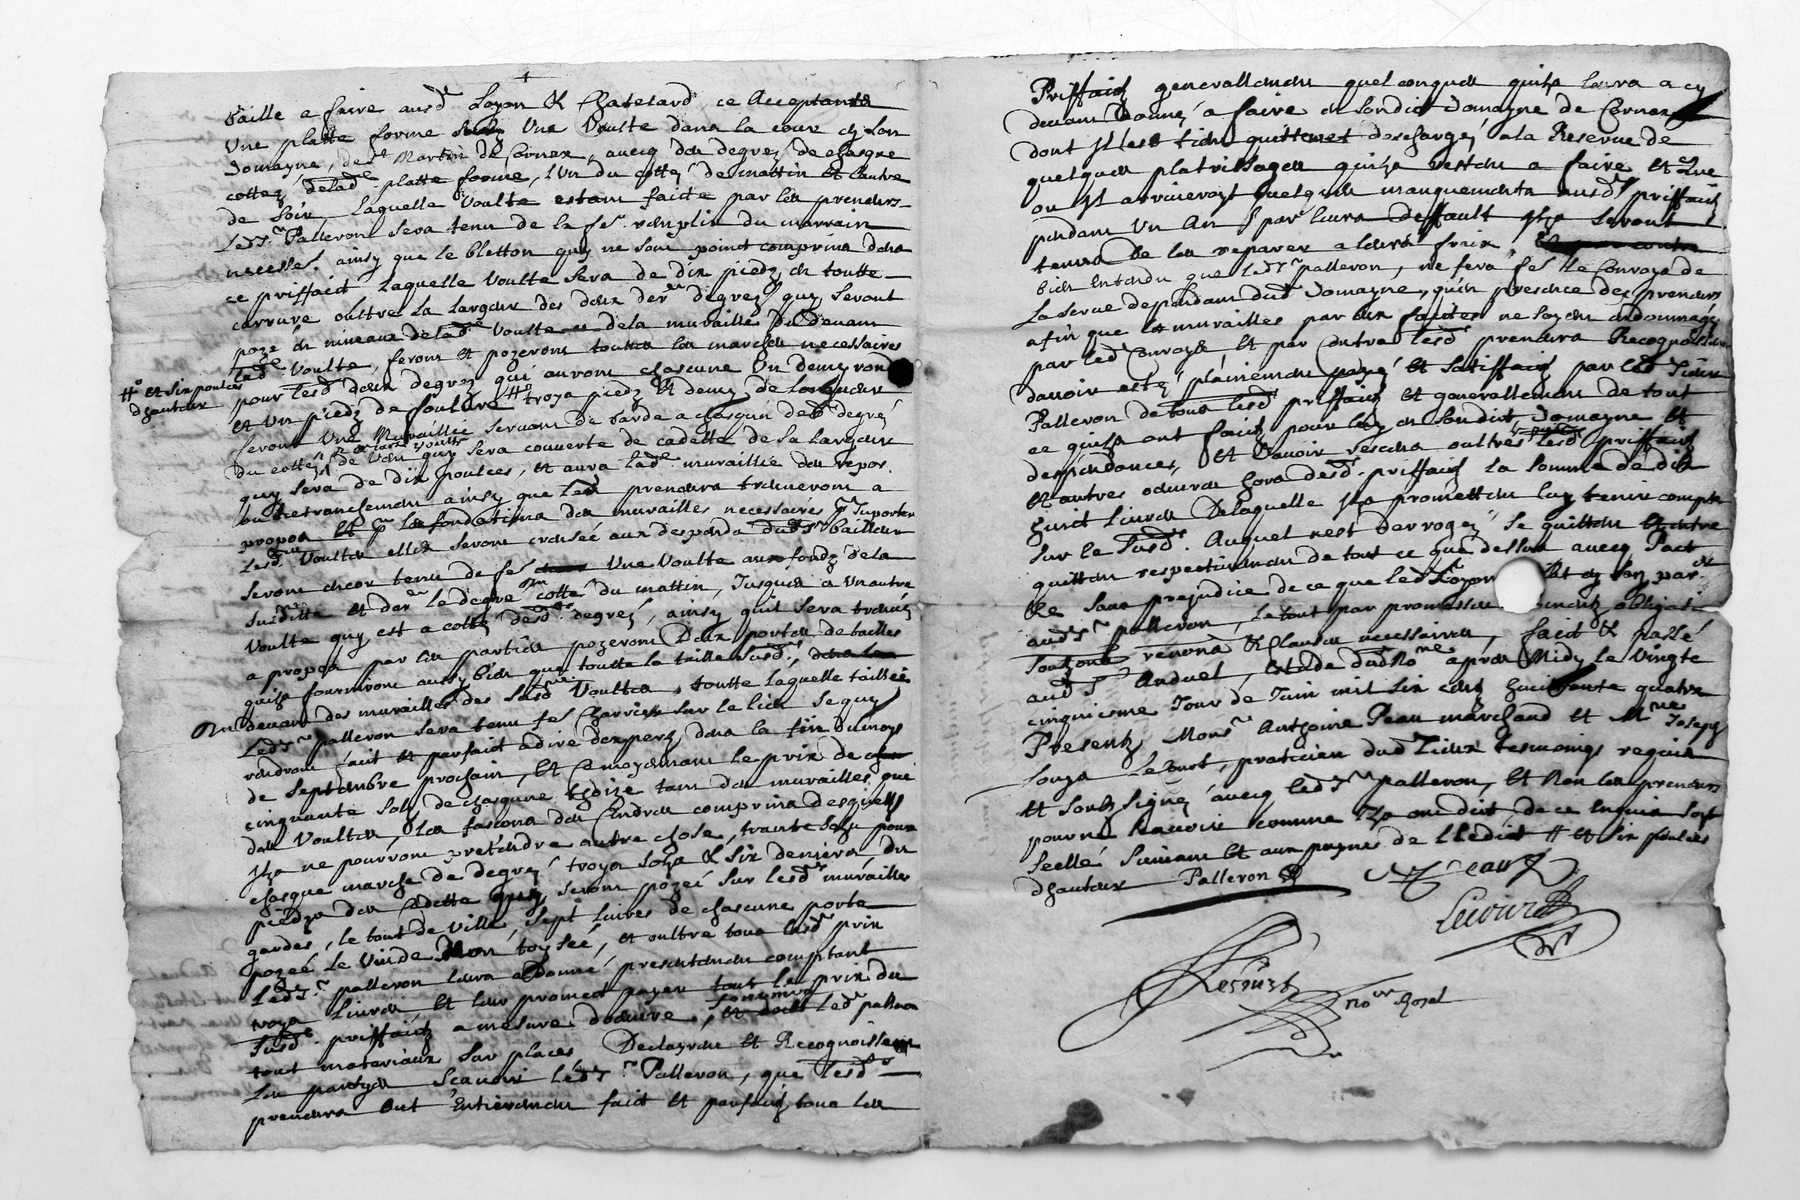 baille a faire ausd Loyon & Chatelard, ce Acceptants
Une platte forme Une Voulte dans la cour de son
domayne, de St Martin de Cornax, avecq des degrez de chasque
costez delade platte forme, l'Un du costez de mattin et l'autre
de soir, laquelle voulte estant faite par les preneurs
Ledsr Palleron sera tenu de la fe remplir du marrain
necesse. ainsy que le bletton quy ne sont point comprins dans
ce priffaict laquelle voulte sera de dix piedz en toutte
carrure oultre la largeur des deux der degrez quy seront
poze en niveaux delade voulte et dela muraille du devant
lade Voulte, feront et pozeront touttes les marches necessaires
pour lesd deux degrez qui auront chascune Un demy rond
# et six poulces
dhauteur
et Un piedz de foulure # troys piedz et demy de longueur
feront Une Muraillie servant de barde a chasqun desd degréz
du costez de vent quy sera couverte de cadette de sa largeur
quy sera de dix poulces, et aura lade muraillie des repos
ou retranchement ainsy que lesd preneurs treuveront a
propos et pr les fondations des murailles necessaires pr suporter
lesd Voultes elles seront creusée aux despends dudsr bailleur
seront encor tenu de fe Une Voulte au fondz dela
susditte et der le degré costé du mattin, jusques a Un autre
voulte quy est a costez desd degrez, ainsy quil sera treuvéz
a propos par les parties pozeront Deux portes de tailles
quils fourniront aussy bien que toutte la taillie susd,
Au devant des murailles des susd Voultes, toutte laquelle taillie
Ledsr palleron sera tenu fe Charrier sur le lieu Ce quy
rendront fait et parfaict a dire dexpers dans la fin du moys
de Septembre prochain, et Ce moyenant le prix de
cinquante solz de chasqune thoize tant des murailles que
des Voultes, les fassons des Cindres comprins desquelles
ilz ne pourront pretendre autre chose, trante solz pour
chasque marche de degrez troys solz & six deniers du
piedz des Cadettes seront pozeé sur lesd murailles
gardes, le tout de ville, sept Livres de chascune porte
pozeé le Vuide Non toyseé, et oultre tous lesd prix
Ledsr palleron leurs a Donné presentement comptant
troys Livres et leur promect payer tout le prix du
susd priffaictz a mesure doeuvre, fournira led palleron
tout materiaux sur places Declayrent et Recognoissent
les partyes Scavoir ledsr Palleron, que lesd
preneurs ont Entierement faict et parfaictz tous les
Priffaictz generallement quelconques quilz leurs a cy
devant donné a faire en sondict domayne de Cornax
dont Il les tient quittes et deschargez a la Reserve de
quelques platrissages quilz restent a faire et Que
ou Il arriveroyt quelques manquements ausd priffaictz
pendant Un An par leurs deffault Ilz seront
tenus de les reparer a leurs fraix,
bien entendu que ledsr palleron, ne fera fe le Convoys de
la serve dependant dud domayne, quen presence des preneurs
afin que les murailles par eux faictes ne soyent endommagé
par led Convoys et par Contre lesd preneurs Recognoissent
davoir estez plainement payé et satisffaictz par led sieur
Palleron de tous lesd priffaictz et generallement de tout
ce quilz ont faictz pour luy en sondict domayne et
despendances, et davoir receu oultres lesd priffaictz
et autres oeuvres hors desd priffaictz la somme de dix
huict Livres De laquelle Ilz promettent luy tenir compte
sur le susd. Auquel nest derrogez Se quittent
quittent respectivement de tout ce que dessus avecq Pact
&c sans prejudice de ce que led Loyon
audsr palleron, le tout par promesses obligat
soubzone renons & Clauses necessaires, faict & passé
aud Anduel, estude dud Nore apres Midy le Vingte
cinquiesme Jour de Juin mil six centz huictante quatre
Presentz Monsr Anthoine Peau marchand et Mre Joseph
Louys Levrat, praticien dud Lieux tesmoings requis
et soubzsignez avecq ledsr palleron, et Non les preneurs
pour ne scavoir comme Ilz ont dict de ce enquis soyt
scellé suivant et aux peynes de l'Edict # et six poulces
dhauteur Palleron
Peau